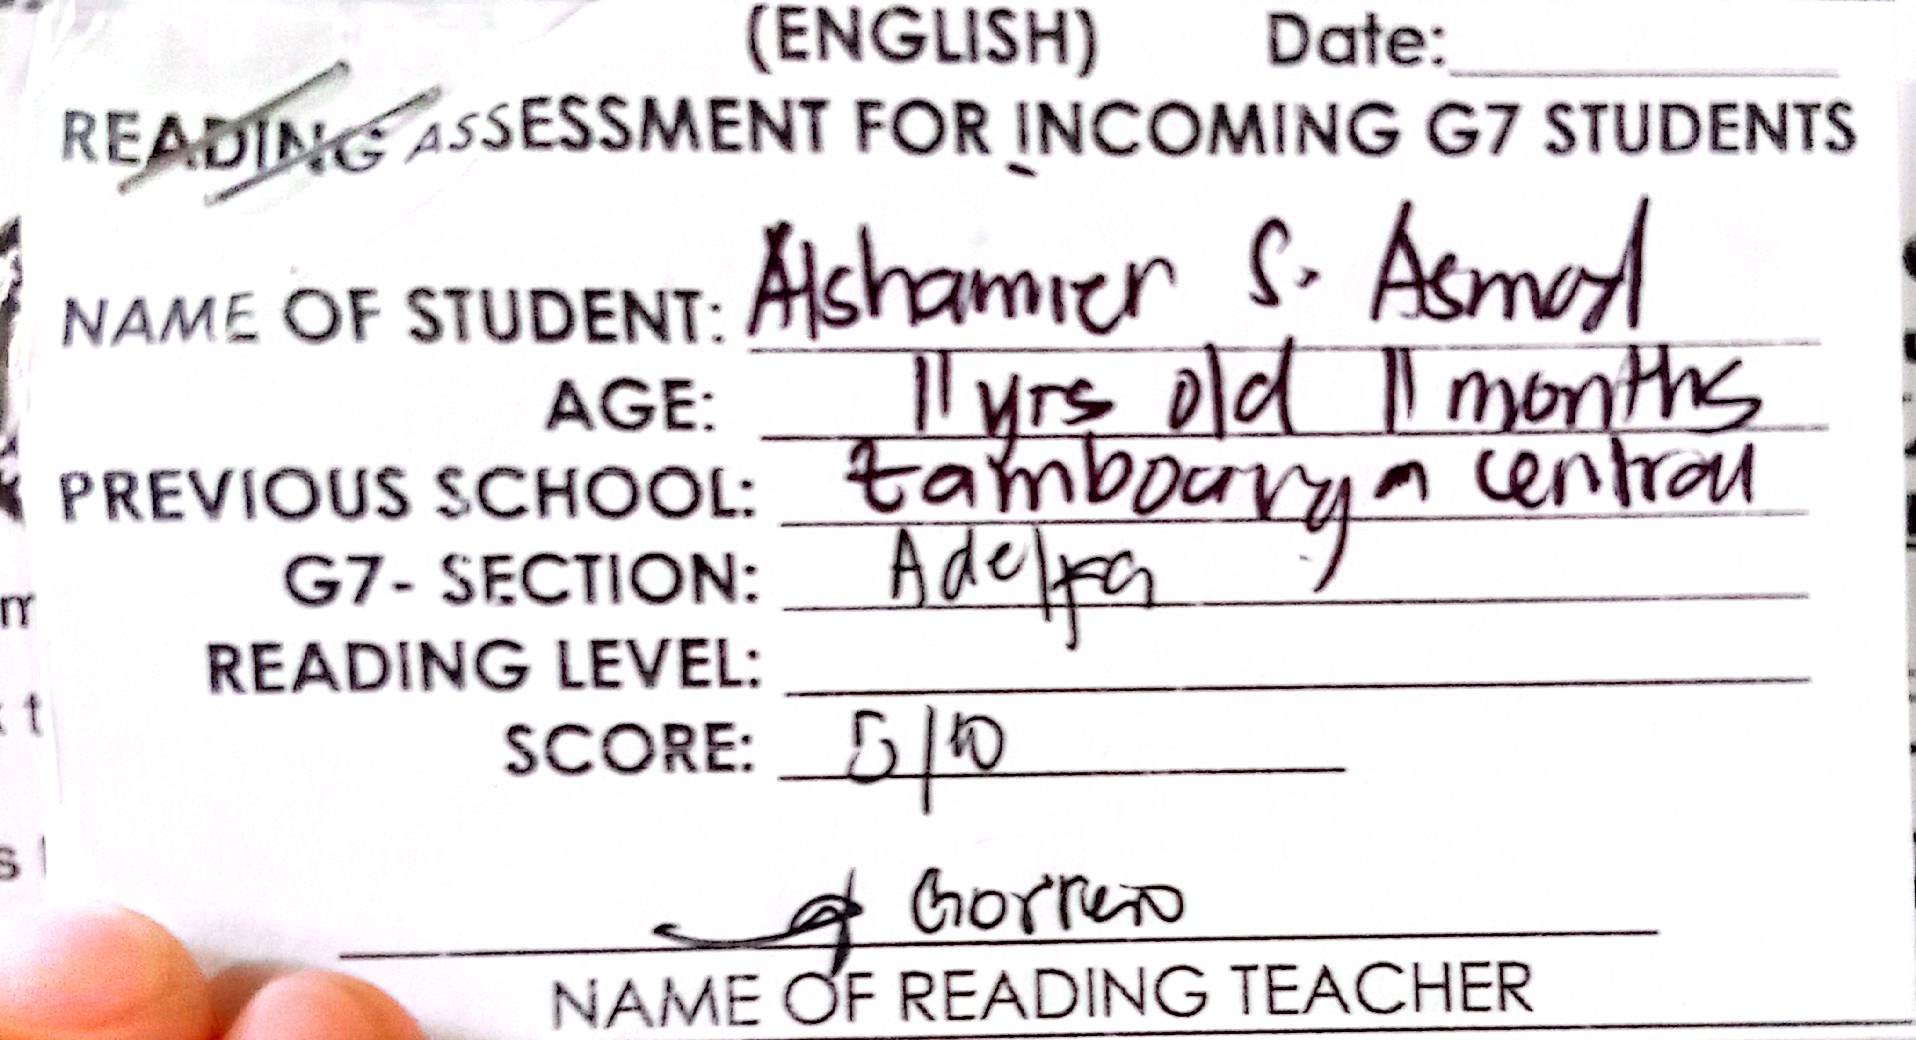 (ENGLISH) Date:
READING ASSESSMENT FOR INCOMING G7 STUDENTS
NAME OF STUDENT: Alshamier S.
AGE: 11 yrs old 11 months
PREVIOUS SCHOOL: central
G7- SECTION: Adelfa
READING LEVEL:
SCORE: 5/10
NAME OF READING TEACHER